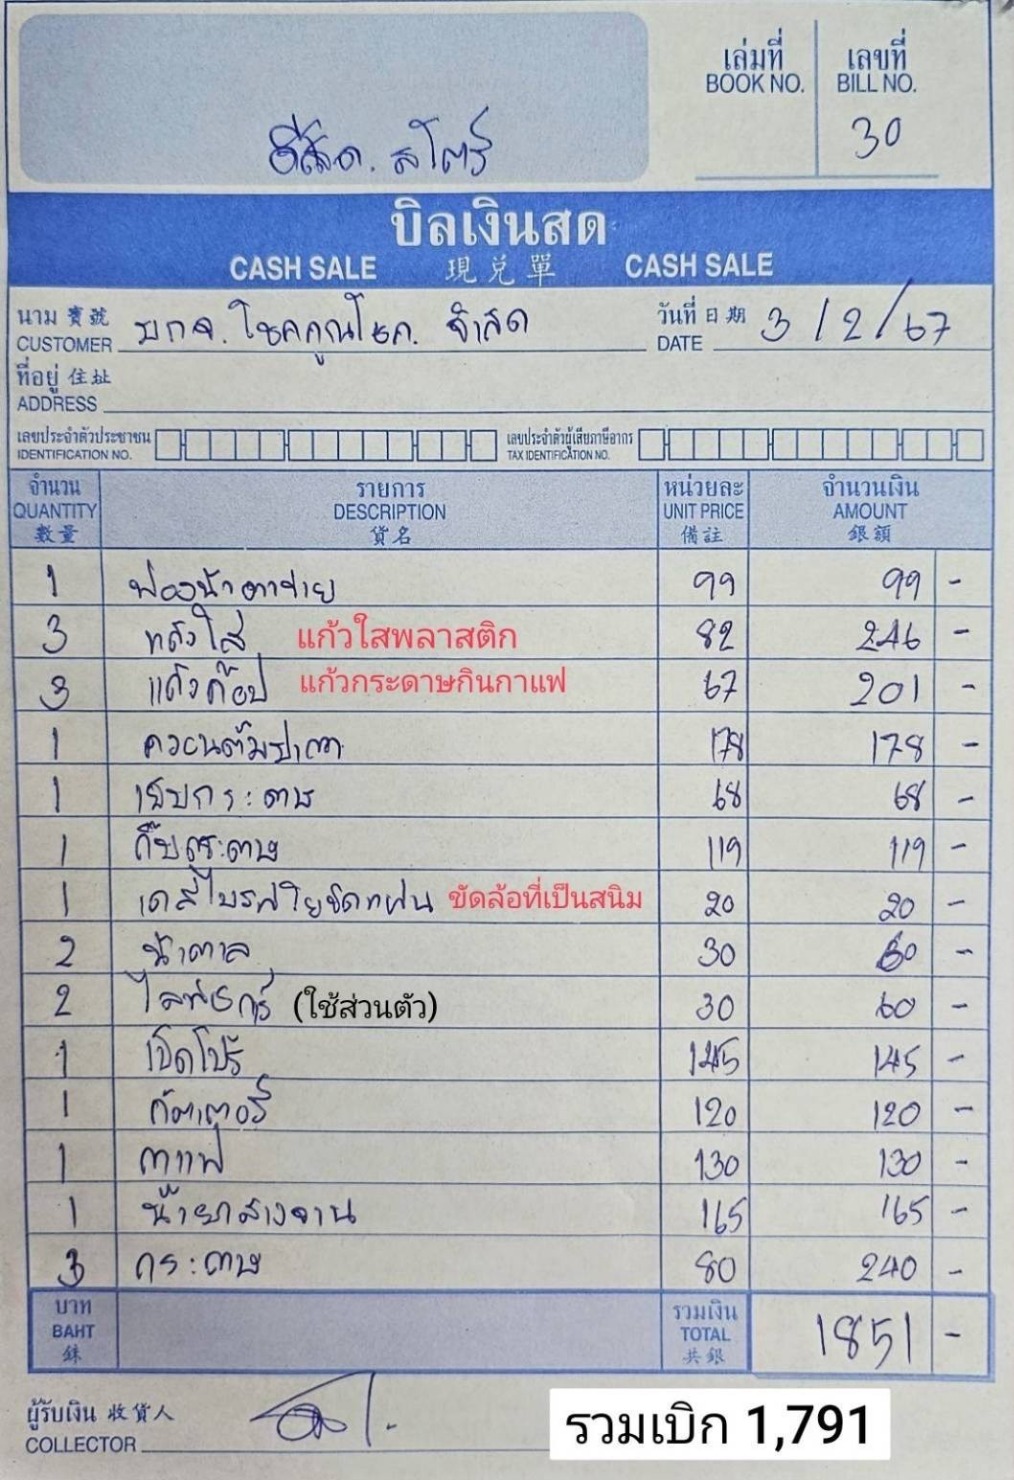 เล่มที่ เลขที่
BOOK NO. BILL NO.
30
สโตร์
บิลเงินสด
CASH SALE 現兌單 CASH SALE
นาม 寶號 บกจ. โชคคูณโชค. จำกัด วันที่ 日期 3/2/67
CUSTOMER DATE
ที่อยู่ 住址
ADDRESS
เลขประจำตัวประชาชน เลขประจำตัวผู้เสียภาษีอากร
IDENTIFICATION NO. TAX IDENTIFICATION NO.
จำนวน รายการ หน่วยละ จำนวนเงิน
QUANTITY DESCRIPTION UNIT PRICE AMOUNT
數量 貨名 備註 銀額
1 ฟองน้ำตาข่าย 99 99 -
3 แก้วใส แก้วใสพลาสติก 82 246 -
3 แก้วก๊อป แก้วกระดาษกินกาแฟ 67 201 -
1 178 178 -
1 เย็บกระดาษ 68 68 -
1 กระดาษ 119 119 -
1 ขัดล้อที่เป็นสนิม 20 20 -
2 น้ำตาล 30 60 -
2 (ใช้ส่วนตัว) 30 60 -
1 145 145 -
1 คัตเตอร์ 120 120 -
1 กาแฟ 130 130 -
1 น้ำยาล้างจาน 165 165 -
3 กระดาษ 80 240 -
บาท รวมเงิน
BAHT TOTAL 1851 -
銖 共銀
ผู้รับเงิน 收貨人
COLLECTOR
รวมเบิก 1,791